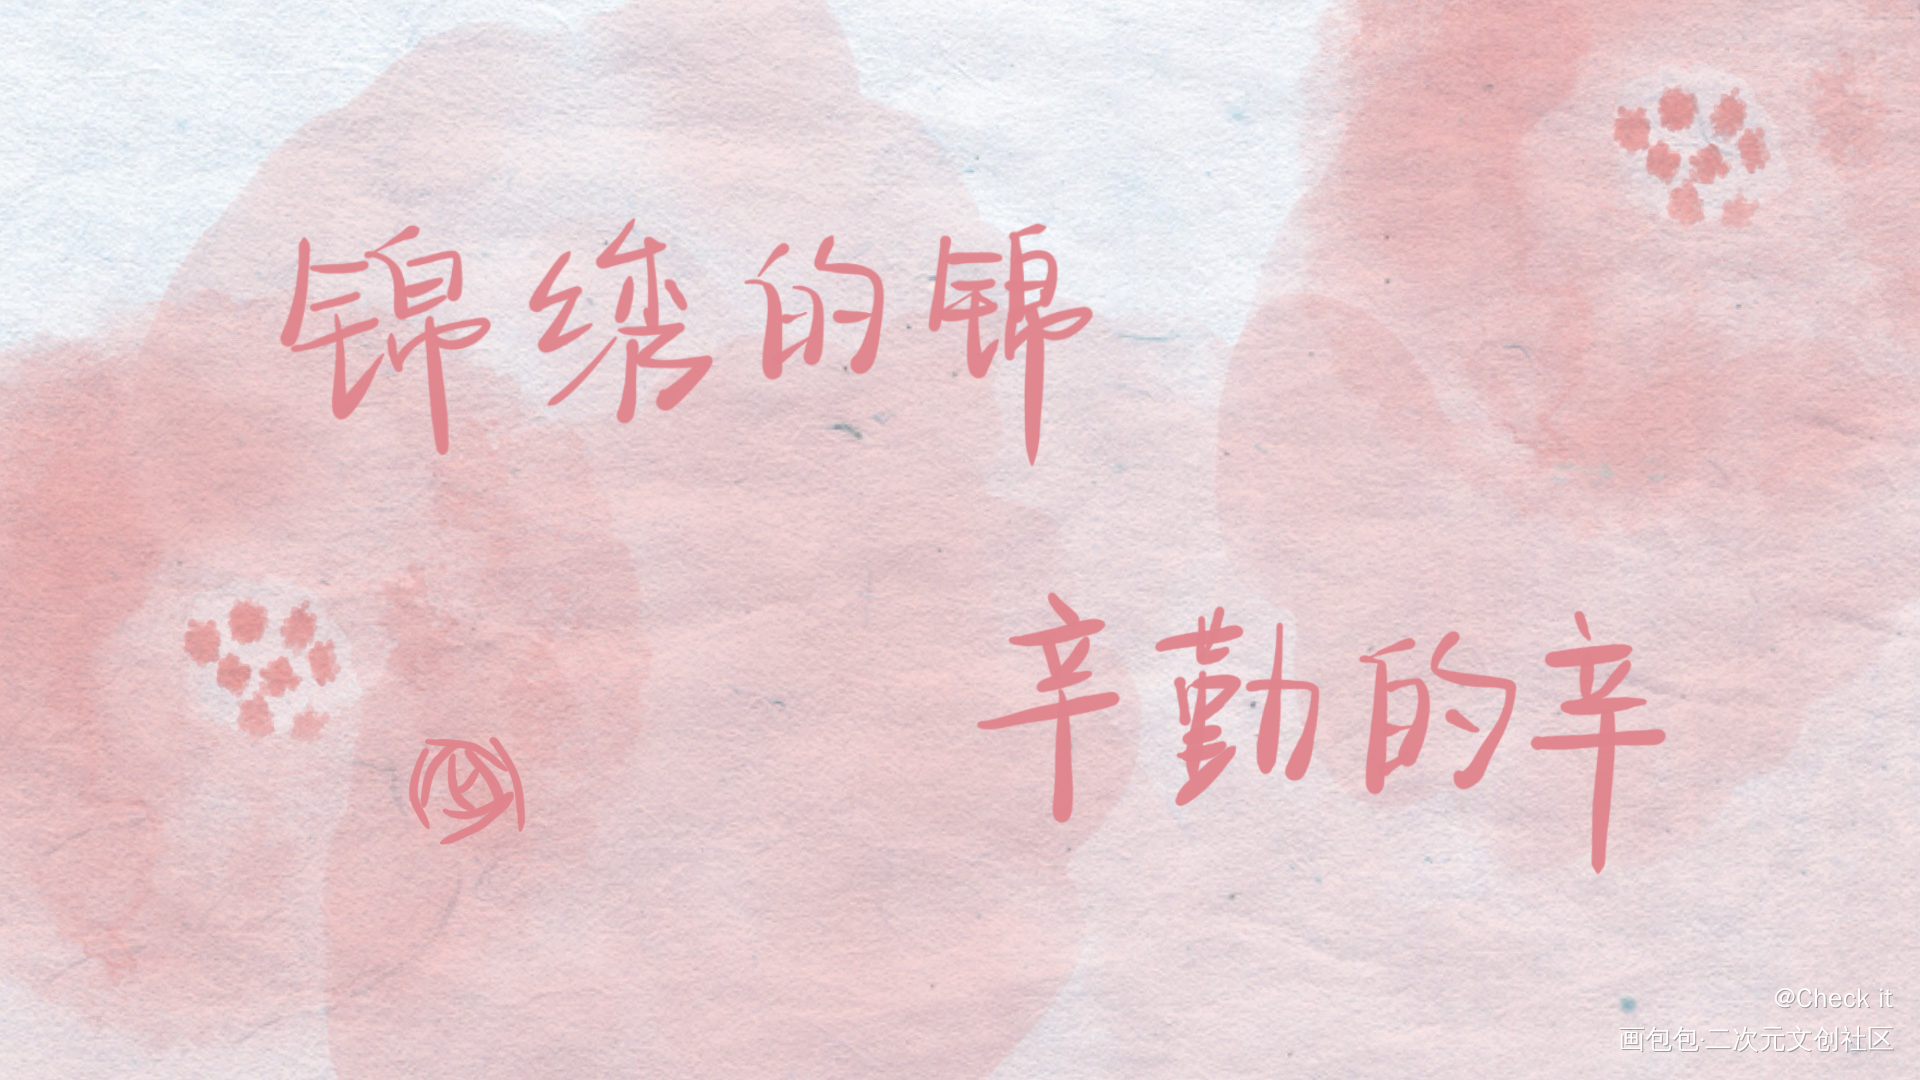 锦绣的锦
辛勤的辛
@Check it
画包包·二次元文创社区